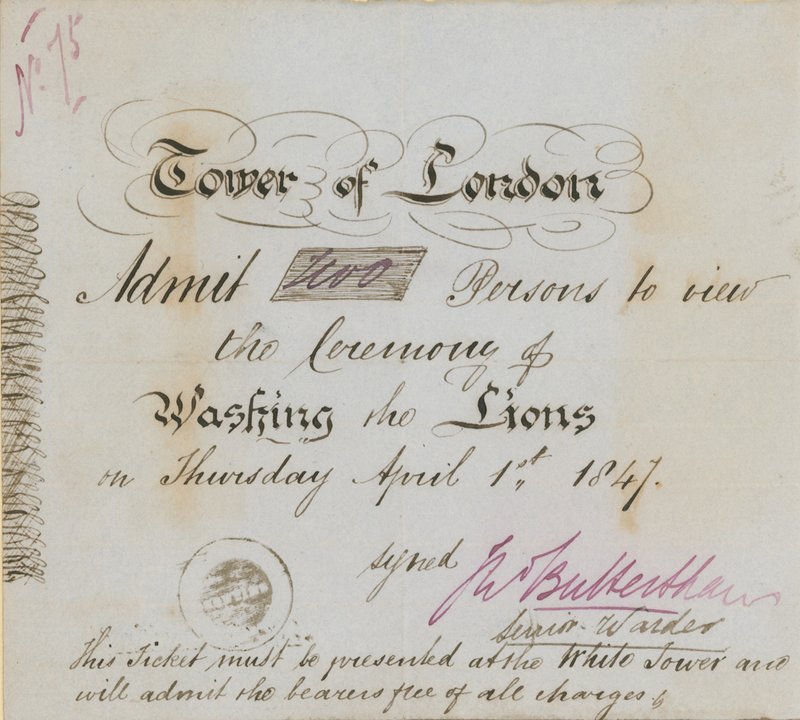 No. 75
Tower of London
Admit two Persons to view
the Ceremony of
Washing the Lions
on Thursday April 1st 1847.
signed
Buttershaw
Senior Warder
This Ticket must be presented at the White Tower and
will admit the bearers free of all charges.